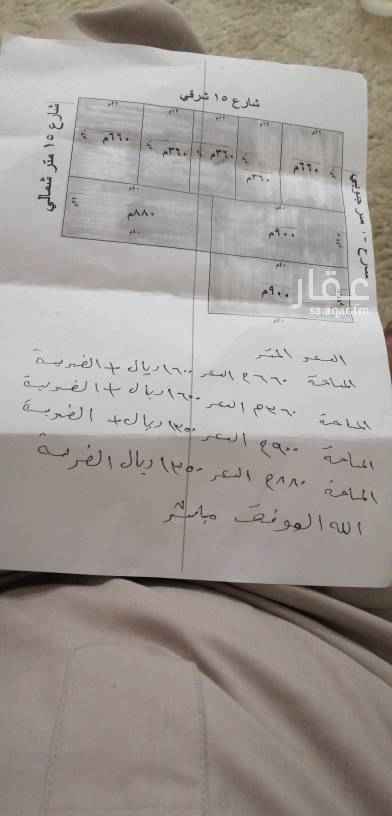 شارع ١٥ شرقي
شارع ١٥ متر شمالي
جنوبي
٦٦٠م
٣٦٠م
٣٦٠م
٣٦٠م
٦٦٠م
٨٨٠م
٩٠٠م
٩٠٠م
عقار
sa.aqar.fm
السعر المتر
المساحة ٦٦٠م السعر ١٦٠٠ ريال + الضريبة
المساحة ٣٦٠م السعر ١٦٠٠ ريال + الضريبة
المساحة ٩٠٠م السعر ١٣٥٠ ريال + الضريبة
المساحة ٨٨٠م السعر ١٣٥٠ ريال الضريبة
الله الموفق مباشر